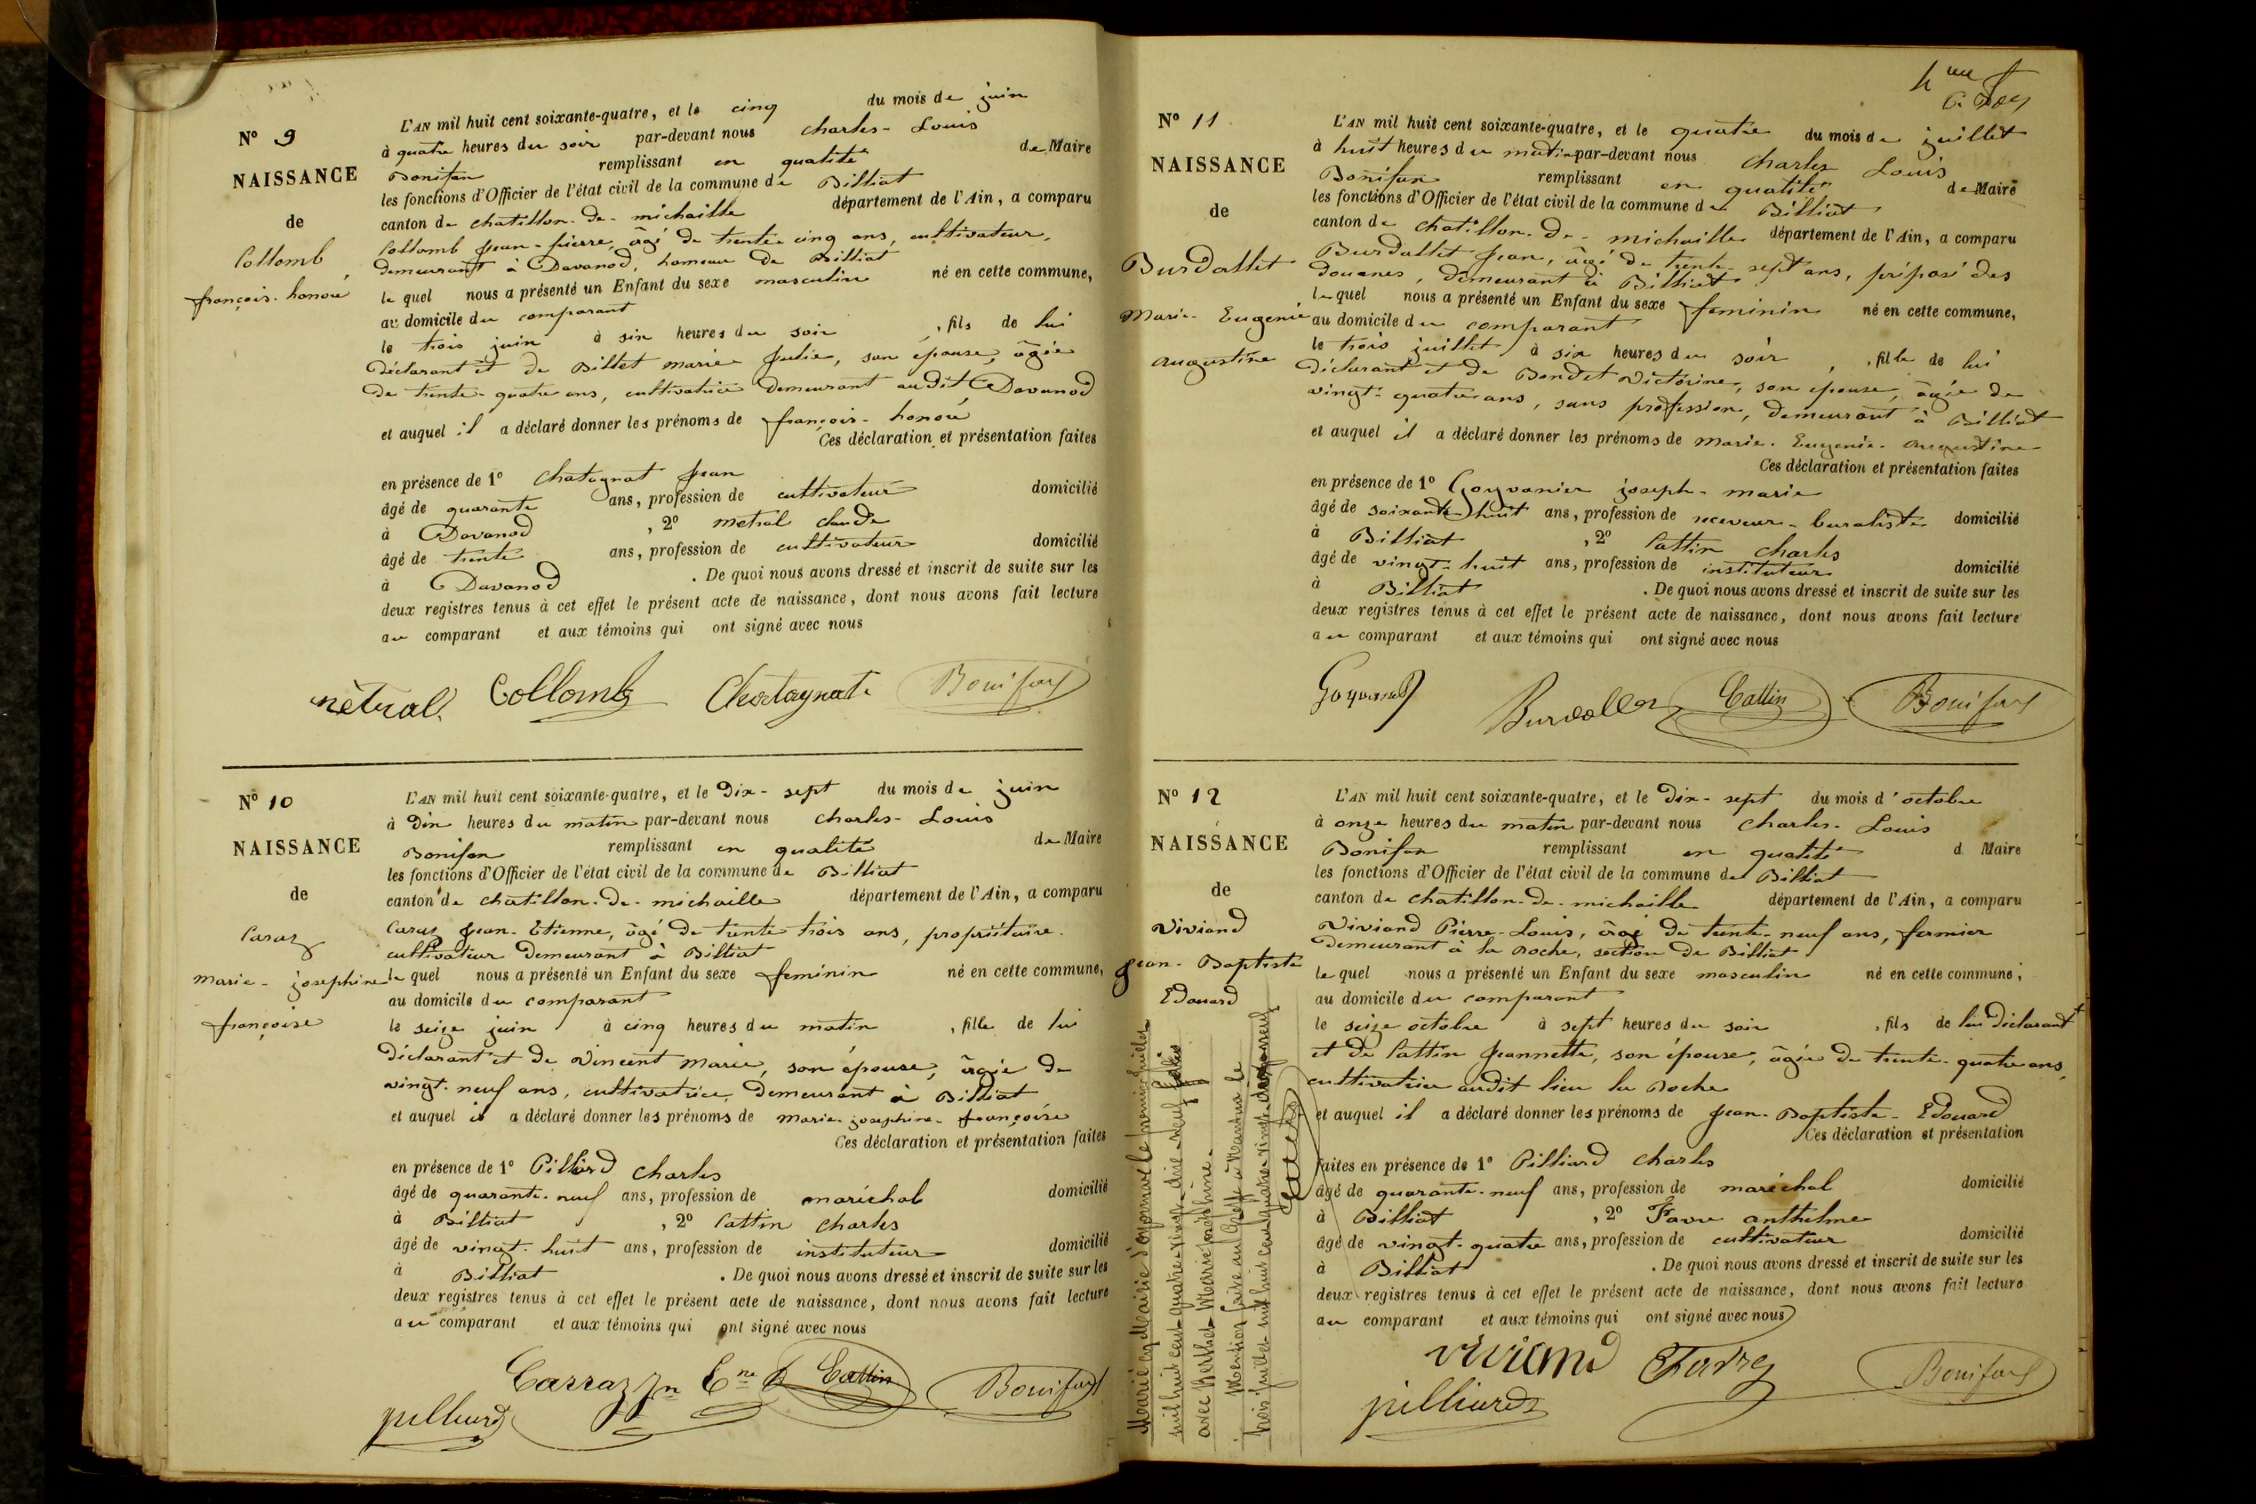 N° 9
NAISSANCE
de
Collomb
françois-honoré
L'AN mil huit cent soixante-quatre, et le cinq du mois de juin
à quatre heures du soir par-devant nous Charles-Louis
Bonifax remplissant en qualité de Maire
les fonctions d'Officier de l'état civil de la commune de Billiat
canton de Chatillon-de-michaille département de l'Ain, a comparu
Collomb Jean-pierre, âgé de trente-cinq ans, cultivateur,
demeurant à Davanod, hameau de Billiat
lequel nous a présenté un Enfant du sexe masculin né en cette commune,
au domicile du comparant
le trois juin à six heures du soir, fils de lui
déclarant et de Billet marie Julie, son épouse, âgée
de trente-quatre ans, cultivatrice demeurant audit Davanod
et auquel il a déclaré donner les prénoms de françois-honoré
Ces déclaration et présentation faites
en présence de 1° Chatagnat Jean
âgé de quarante ans, profession de cultivateur domicilié
à Davanod, 2° metral claude
âgé de trente ans, profession de cultivateur domicilié
à Davanod. De quoi nous avons dressé et inscrit de suite sur les
deux registres tenus à cet effet le présent acte de naissance, dont nous avons fait lecture
au comparant et aux témoins qui ont signé avec nous
nètral. Collomb Chatagnat Bonifax
N° 10
NAISSANCE
de
Caraz
marie-josephine
françoise
L'AN mil huit cent soixante-quatre, et le Dix-sept du mois de juin
à Dix heures du matin par-devant nous Charles-Louis
Bonifax remplissant en qualité de Maire
les fonctions d'Officier de l'état civil de la commune de Billiat
canton de Chatillon-de-michaille département de l'Ain, a comparu
Caraz Jean-Etienne, âgé de trente trois ans, propriétaire-
cultivateur demeurant à Billiat
lequel nous a présenté un Enfant du sexe féminin né en cette commune,
au domicile du comparant
le seize juin à cinq heures du matin, fille de lui
déclarant et de Vincent Marie, son épouse, âgée de
vingt-neuf ans, cultivatrice, demeurant à Billiat
et auquel il a déclaré donner les prénoms de marie-josephine-françoise
Ces déclaration et présentation faites
en présence de 1° Pilliard Charles
âgé de quarante-neuf ans, profession de maréchal domicilié
à Billiat, 2° Cattin Charles
âgé de vingt-huit ans, profession de instituteur domicilié
à Billiat. De quoi nous avons dressé et inscrit de suite sur les
deux registres tenus à cet effet le présent acte de naissance, dont nous avons fait lecture
au comparant et aux témoins qui ont signé avec nous
Carraz Jn Ene Cattin Bonifax
pilliard
N° 11
NAISSANCE
de
Burdallet
Marie-Eugenie
augustine
L'AN mil huit cent soixante-quatre, et le quatre du mois de juillet
à huit heures du matin par-devant nous Charles Louis
Bonifax remplissant en qualité de Maire
les fonctions d'Officier de l'état civil de la commune de Billiat
canton de Chatillon-de-michaille département de l'Ain, a comparu
Burdallet Jean, âgé de trente-sept ans, préposé des
douanes, demeurant à Billiat
lequel nous a présenté un Enfant du sexe féminin né en cette commune,
au domicile du comparant
le trois juillet à six heures du soir, fille de lui
déclarant et de Bondet Victorine, son épouse, âgée de
vingt-quatre ans, sans profession, demeurant à Billiat
et auquel il a déclaré donner les prénoms de marie-Eugenie-augustine
Ces déclaration et présentation faites
en présence de 1° Goyvanier joseph-marie
âgé de soixante-huit ans, profession de receveur-buraliste domicilié
à Billiat, 2° Cattin Charles
âgé de vingt-huit ans, profession de instituteur domicilié
à Billiat. De quoi nous avons dressé et inscrit de suite sur les
deux registres tenus à cet effet le présent acte de naissance, dont nous avons fait lecture
au comparant et aux témoins qui ont signé avec nous
Burdallet Cattin Bonifax
N° 12
NAISSANCE
de
Viviand
Jean-Baptiste
Edouard
L'AN mil huit cent soixante-quatre, et le Dix-sept du mois d'octobre
à onze heures du matin par-devant nous Charles-Louis
Bonifax remplissant en qualité d Maire
les fonctions d'Officier de l'état civil de la commune de Billiat
canton de Chatillon-de-michaille département de l'Ain, a comparu
Viviand Pierre-Louis, âgé de trente-neuf ans, fermier
demeurant à la Roche, section de Billiat
lequel nous a présenté un Enfant du sexe masculin né en cette commune,
au domicile du comparant
le seize octobre à sept heures du soir, fils de lui déclarant
et de Cattin Jeannette, son épouse, âgée de trente-quatre ans,
cultivatrice audit lieu la Roche
et auquel il a déclaré donner les prénoms de Jean-Baptiste-Edouard
Ces déclaration et présentation
faites en présence de 1° Pilliard Charles
âgé de quarante-neuf ans, profession de maréchal domicilié
à Billiat, 2° Favre anthelme
âgé de vingt-quatre ans, profession de cultivateur domicilié
à Billiat. De quoi nous avons dressé et inscrit de suite sur les
deux registres tenus à cet effet le présent acte de naissance, dont nous avons fait lecture
au comparant et aux témoins qui ont signé avec nous
viviand Favre Bonifax
pilliard
Marié en Mairie d'Oyonnax le premier juillet
mil huit cent quatre-vingt-dix-neuf
avec Berthet Marie Joséphine.
Mention faite au Greffe à Nantua le
trois juillet mil huit cent quatre-vingt-dix-neuf